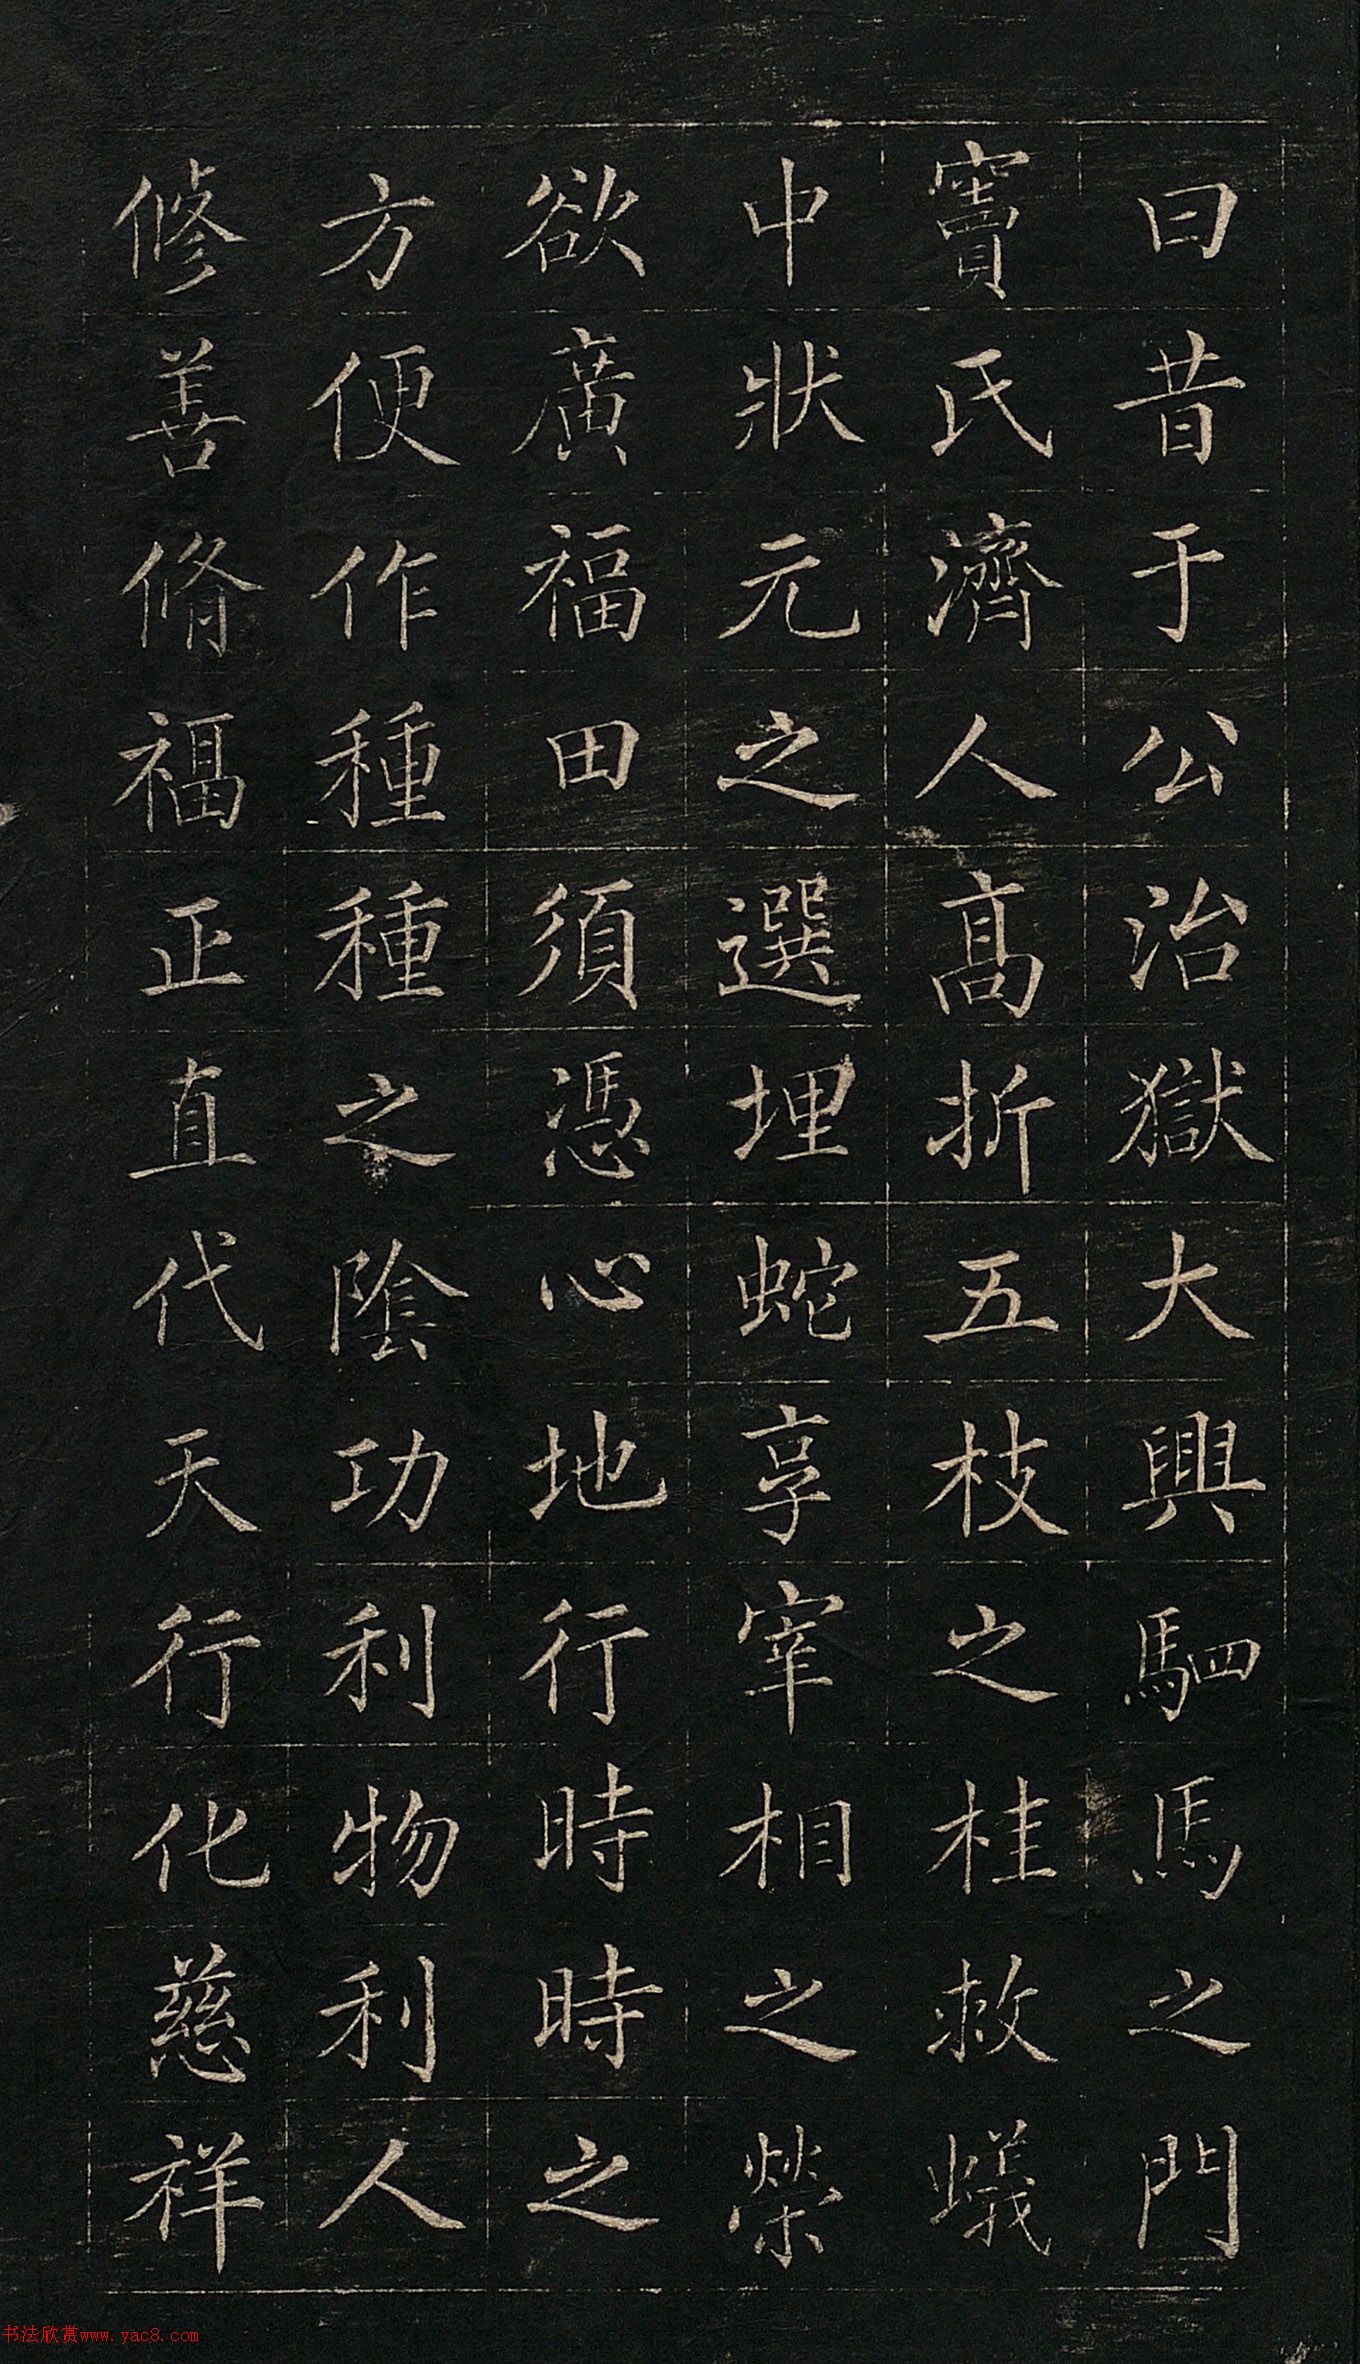 曰昔于公治獄大興駟馬之門
竇氏濟人高折五枝之桂救蟻
中狀元之選埋蛇享宰相之榮
欲廣福田須憑心地行時時之
方便作種種之陰功利物利人
修善脩福正直代天行化慈祥
书法欣赏www.yac8.com